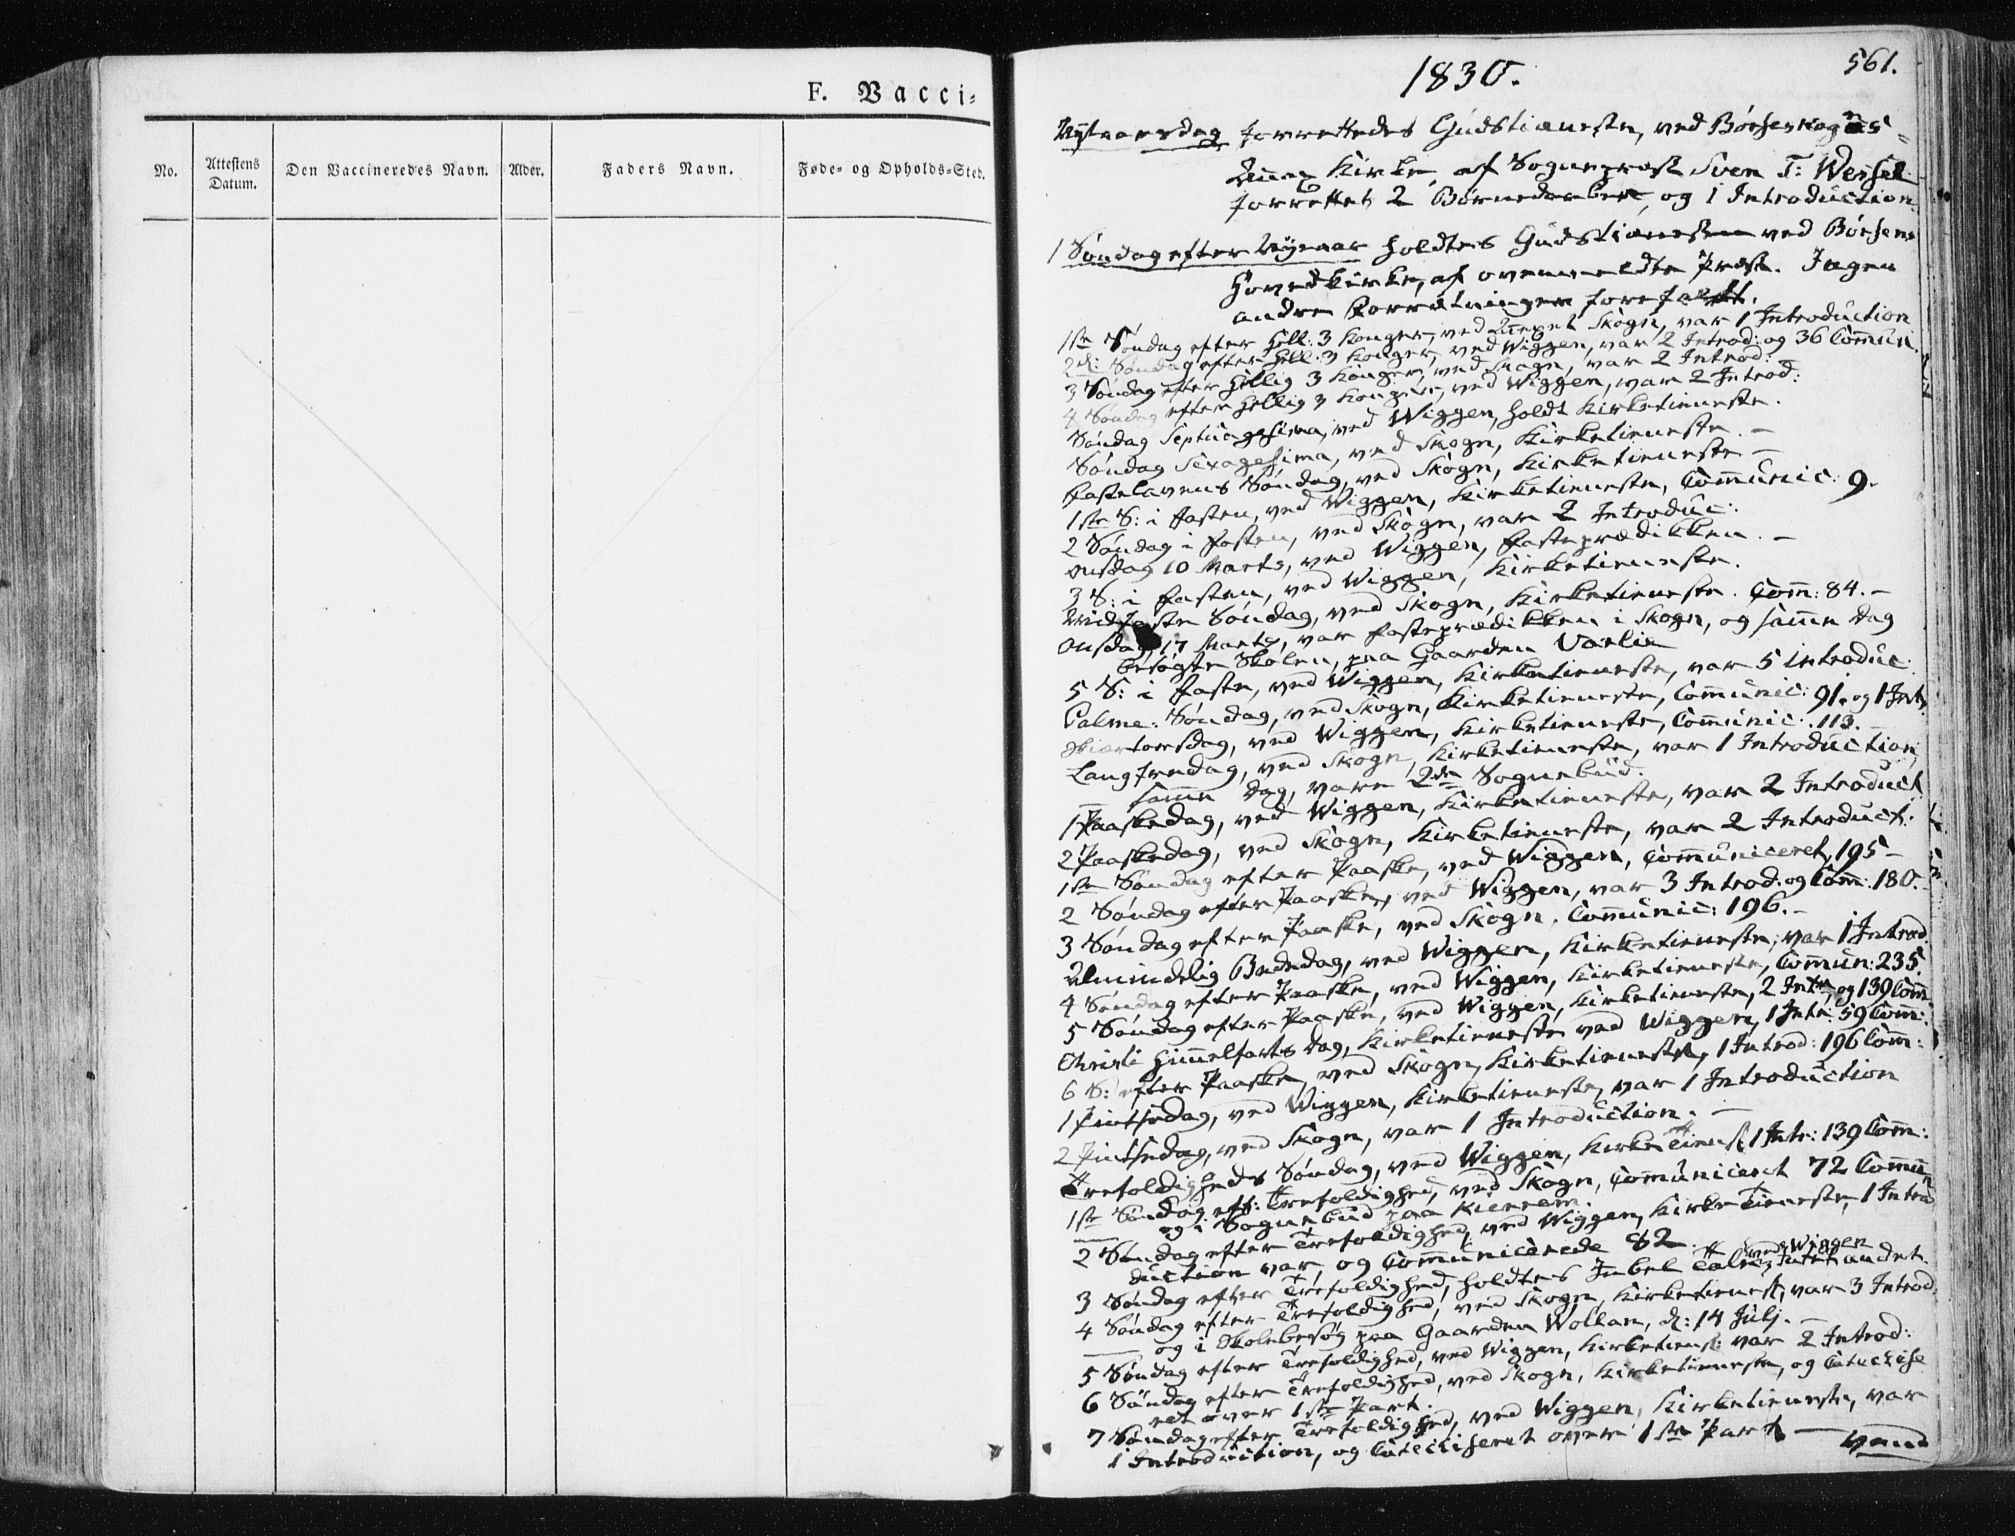 F. Vacci-
No.
Attestens Datum.
Den Vaccineredes Navn.
Alder.
Faders Navn.
Føde- og Opholds-Sted.
1830.
561.
Nytaarsdag forrettedes Gudstieneste, ved Børseskogns
Annex Kirke, af Sognepræst Sven T: Wessel
forrettet 2 Børnedaaber, og 1 Introduction.
1 Søndag efter Nyeaar holdtes Gudstienesten ved Børsens
Hovedkirke, af ovenmeldte Præst. Ingen
andre Forretninger forefaldt.
1ste Søndag efter Hell: 3 Konger, ved Annexet Skogn, var 1 Introduction
2d: Søndag efter Hell: 3 Konger, ved Wiggen, var 2 Introd: og 36 Com̅un.
3 Søndag efter Hellig 3 Konger, ved Skogn, var 2 Introd:
4 Søndag efter Hellig 3 Konger, ved Wiggen, var 2 Introd:
Søndag Septuagesima, ved Wiggen, holdt Kirketieneste.
Søndag Sexagesima, ved Skogn, Kirketieneste. -
Fastelavens Søndag, ved Skogn, Kirketieneste -
1ste S: i Fasten, ved Wiggen, Kirketieneste, Com̅unic: 9.
2 Søndag i Fasten, ved Skogn, var 2 Introduc:
Onsdag 10 Marts, ved Wiggen, Fasteprædikken. -
3 S: i Fasten, ved Wiggen, Kirketieneste.
Midfaste Søndag, ved Skogn, Kirketieneste. Com̅: 84. -
Onsdag 17 Marts, var Fasteprædikken i Skogn, og samme Dag
besøgte Skolen, paa Gaarden Vorlie
5 S: i Faste, ved Wiggen, Kirketieneste, var 5 introduc:
Palme: Søndag, ved Skogn, Kirketieneste, Com̅unic: 91. og 1 Intr.
Skiærtorsdag, ved Wiggen, Kirketieneste, Com̅unic: 113. -
Langfredag, ved Skogn, Kirketieneste, var 1 Introduction,
samme Dag, vare 2de Sognebud.
1 Paaskedag, ved Wiggen, Kirketieneste, var 2 Introduct.
2 Paaskedag, ved Skogn, Kirketieneste, var 2 Introduct.
1ste Søndag efter Paaske, ved Wiggen, Com̅uniceret, 195 -
2 Søndag efter Paaske, ved Wiggen, var 3 Introd: og Com̅: 180.
3 Søndag efter Paaske, ved Skogn. Com̅unic: 196. -
Almindelig Bededag, ved Wiggen, Kirketieneste, var 1 Introd.
4 Søndag efter Paaske, ved Wiggen, Kirketieneste, Com̅un: 235.
5 Søndag efter Paaske, ved Wiggen, Kirketieneste, 2 Intr, og 139 Com̅:
Christi Himmelfarts Dag, Kirketieneste ved Wiggen, 1 Intr: 59 Com̅:
6 S: efter Paaske, ved Skogn, Kirketieneste, 1 Introd: 196 Com̅:
1 Pintsedag, ved Wiggen, Kirketieneste, var 1 Introduction
2 Pintsedag, ved Skogn, var 1 Introduction. -
Trefoldigheds Søndag, ved Wiggen, Kirke Tienest, 1 Intr: 139 Com̅:
1ste Søndag eft: Trefoldighed, ved Skogn, Com̅uniceret 72 Com̅un
og 1 Sognebud paa Kierrem.
2 Søndag efter Trefoldighed, ved Wiggen, Kirke Tieneste, 1 Intro
duction var, og Com̅unicerede 82.
3 Søndag efter Trefoldighed, holdtes Jubel Tale, ved Wiggen Intet andet
4 Søndag efter Trefoldighed, ved Skogn, Kirketienest, var 3 Introd.
og 1 Skolebesøg paa Gaarden Wollan, d: 14 Julj. -
5 Søndag efter Trefoldighed, ved Wiggen, Kirketienest: var 2 Introd:
6 Søndag efter Trefoldighed, ved Skogn, Kirketieneste, og Catechise
ret over 1ste Part.
7 Søndag efter Trefoldighed, ved Wiggen, Kirketieneste, var
1 Introduction, og Catechiseret over 1ste Part — vend